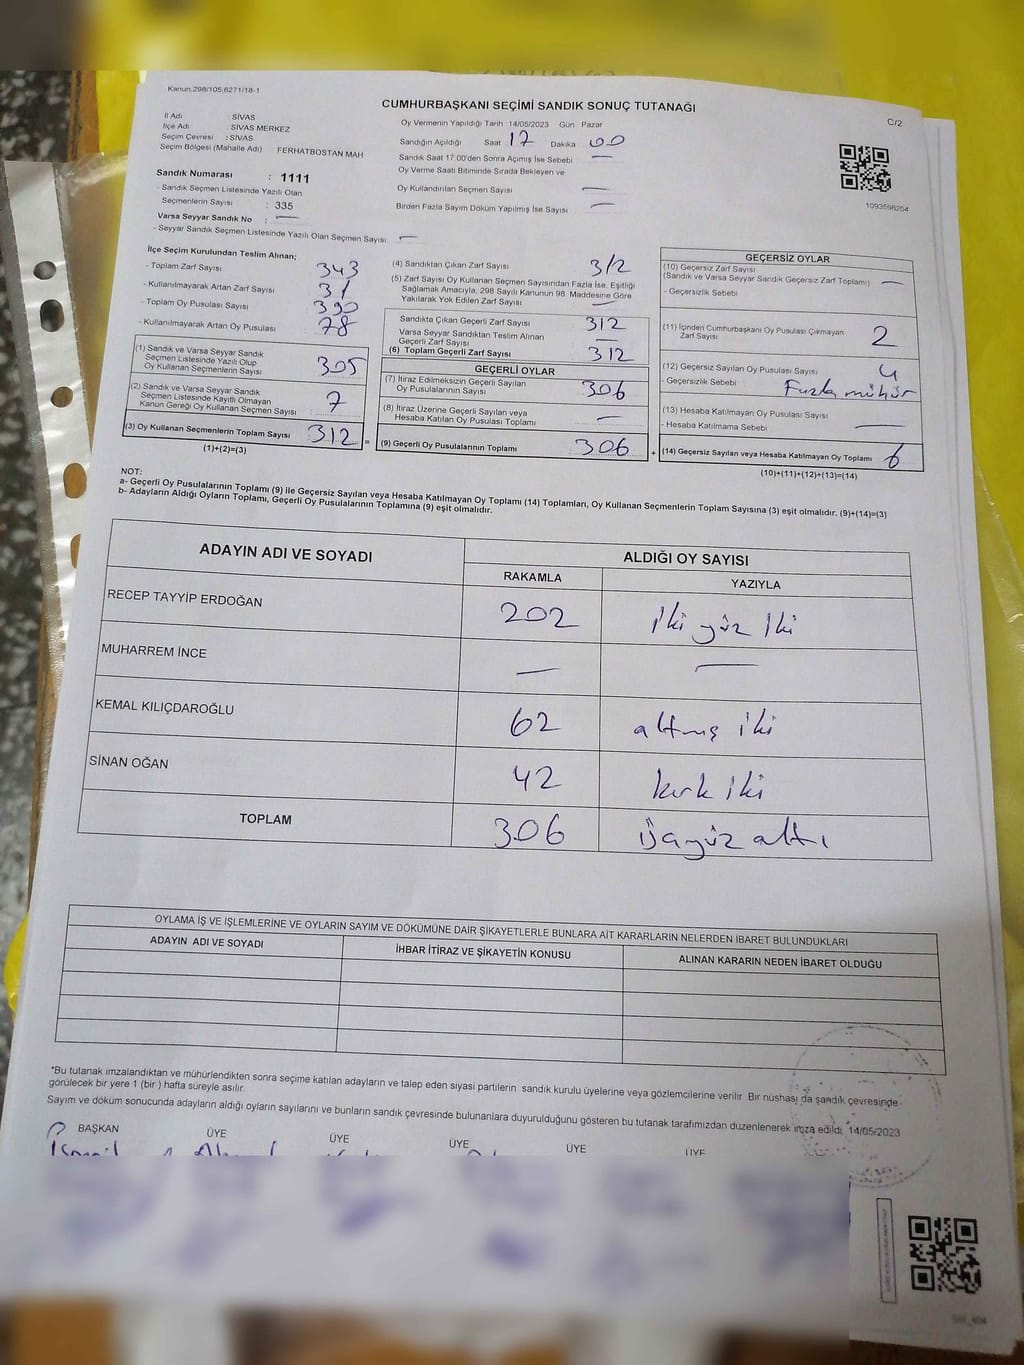 Kanun:298/105,6271/18-1
CUMHURBAŞKANI SEÇİMİ SANDIK SONUÇ TUTANAĞI
C/2
İl Adı SİVAS
İlçe Adı SİVAS MERKEZ
Seçim Çevresi : SİVAS
Seçim Bölgesi (Mahalle Adı) : FERHATBOSTAN MAH
Sandık Numarası : 1111
- Sandık Seçmen Listesinde Yazılı Olan
Seçmenlerin Sayısı : 335
Varsa Seyyar Sandık No : —
- Seyyar Sandık Seçmen Listesinde Yazılı Olan Seçmen Sayısı : —
Oy Vermenin Yapıldığı Tarih :14/05/2023 Gün : Pazar
Sandığın Açıldığı Saat 17 Dakika 00
Sandık Saat 17:00'den Sonra Açımış İse Sebebi —
Oy Verme Saati Bitiminde Sırada Bekleyen ve
Oy Kullandırılan Seçmen Sayısı —
Birden Fazla Sayım Döküm Yapılmış İse Sayısı —
1093598204
İlçe Seçim Kurulundan Teslim Alınan;
- Toplam Zarf Sayısı 343
- Kullanılmayarak Artan Zarf Sayısı 31
- Toplam Oy Pusulası Sayısı 390
- Kullanılmayarak Artan Oy Pusulası 78
(1) Sandık ve Varsa Seyyar Sandık
Seçmen Listesinde Yazılı Olup
Oy Kullanan Seçmenlerin Sayısı 305
(2) Sandık ve Varsa Seyyar Sandık
Seçmen Listesinde Kayıtlı Olmayan
Kanun Gereği Oy Kullanan Seçmen Sayısı 7
(3) Oy Kullanan Seçmenlerin Toplam Sayısı 312 =
(1)+(2)=(3)
(4) Sandıktan Çıkan Zarf Sayısı 312
(5) Zarf Sayısı Oy Kullanan Seçmen Sayısından Fazla İse, Eşitliği
Sağlamak Amacıyla, 298 Sayılı Kanunun 98. Maddesine Göre
Yakılarak Yok Edilen Zarf Sayısı —
Sandıkta Çıkan Geçerli Zarf Sayısı 312
Varsa Seyyar Sandıktan Teslim Alınan
Geçerli Zarf Sayısı —
(6) Toplam Geçerli Zarf Sayısı 312
GEÇERLİ OYLAR
(7) İtiraz Edilmeksizin Geçerli Sayılan
Oy Pusulalarının Sayısı 306
(8) İtiraz Üzerine Geçerli Sayılan veya
Hesaba Katılan Oy Pusulası Toplamı —
(9) Geçerli Oy Pusulalarının Toplamı 306 +
GEÇERSİZ OYLAR
(10) Geçersiz Zarf Sayısı
(Sandık ve Varsa Seyyar Sandık Geçersiz Zarf Toplamı) —
- Geçersizlik Sebebi
(11) İçinden Cumhurbaşkanı Oy Pusulası Çıkmayan
Zarf Sayısı 2
(12) Geçersiz Sayılan Oy Pusulası Sayısı 4
- Geçersizlik Sebebi Fazla mühür
(13) Hesaba Katılmayan Oy Pusulası Sayısı
- Hesaba Katılmama Sebebi —
(14) Geçersiz Sayılan veya Hesaba Katılmayan Oy Toplamı 6
(10)+(11)+(12)+(13)=(14)
NOT:
a- Geçerli Oy Pusulalarının Toplamı (9) ile Geçersiz Sayılan veya Hesaba Katılmayan Oy Toplamı (14) Toplamları, Oy Kullanan Seçmenlerin Toplam Sayısına (3) eşit olmalıdır. (9)+(14)=(3)
b- Adayların Aldığı Oyların Toplamı, Geçerli Oy Pusulalarının Toplamına (9) eşit olmalıdır.
ADAYIN ADI VE SOYADI ALDIĞI OY SAYISI
RAKAMLA YAZIYLA
RECEP TAYYİP ERDOĞAN 202 iki yüz iki
MUHARREM İNCE — —
KEMAL KILIÇDAROĞLU 62 altmış iki
SİNAN OĞAN 42 kırk iki
TOPLAM 306 üçyüz altı
OYLAMA İŞ VE İŞLEMLERİNE VE OYLARIN SAYIM VE DÖKÜMÜNE DAİR ŞİKAYETLERLE BUNLARA AİT KARARLARIN NELERDEN İBARET BULUNDUKLARI
ADAYIN ADI VE SOYADI İHBAR İTİRAZ VE ŞİKAYETİN KONUSU ALINAN KARARIN NEDEN İBARET OLDUĞU
*Bu tutanak imzalandıktan ve mühürlendikten sonra seçime katılan adayların ve talep eden siyasi partilerin sandık kurulu üyelerine veya gözlemcilerine verilir. Bir nüshası da sandık çevresinde
görülecek bir yere 1 (bir ) hafta süreyle asılır.
Sayım ve döküm sonucunda adayların aldığı oyların sayılarını ve bunların sandık çevresinde bulunanlara duyurulduğunu gösteren bu tutanak tarafımızdan düzenlenerek imza edildi. 14/05/2023
BAŞKAN ÜYE ÜYE ÜYE ÜYE ÜYE